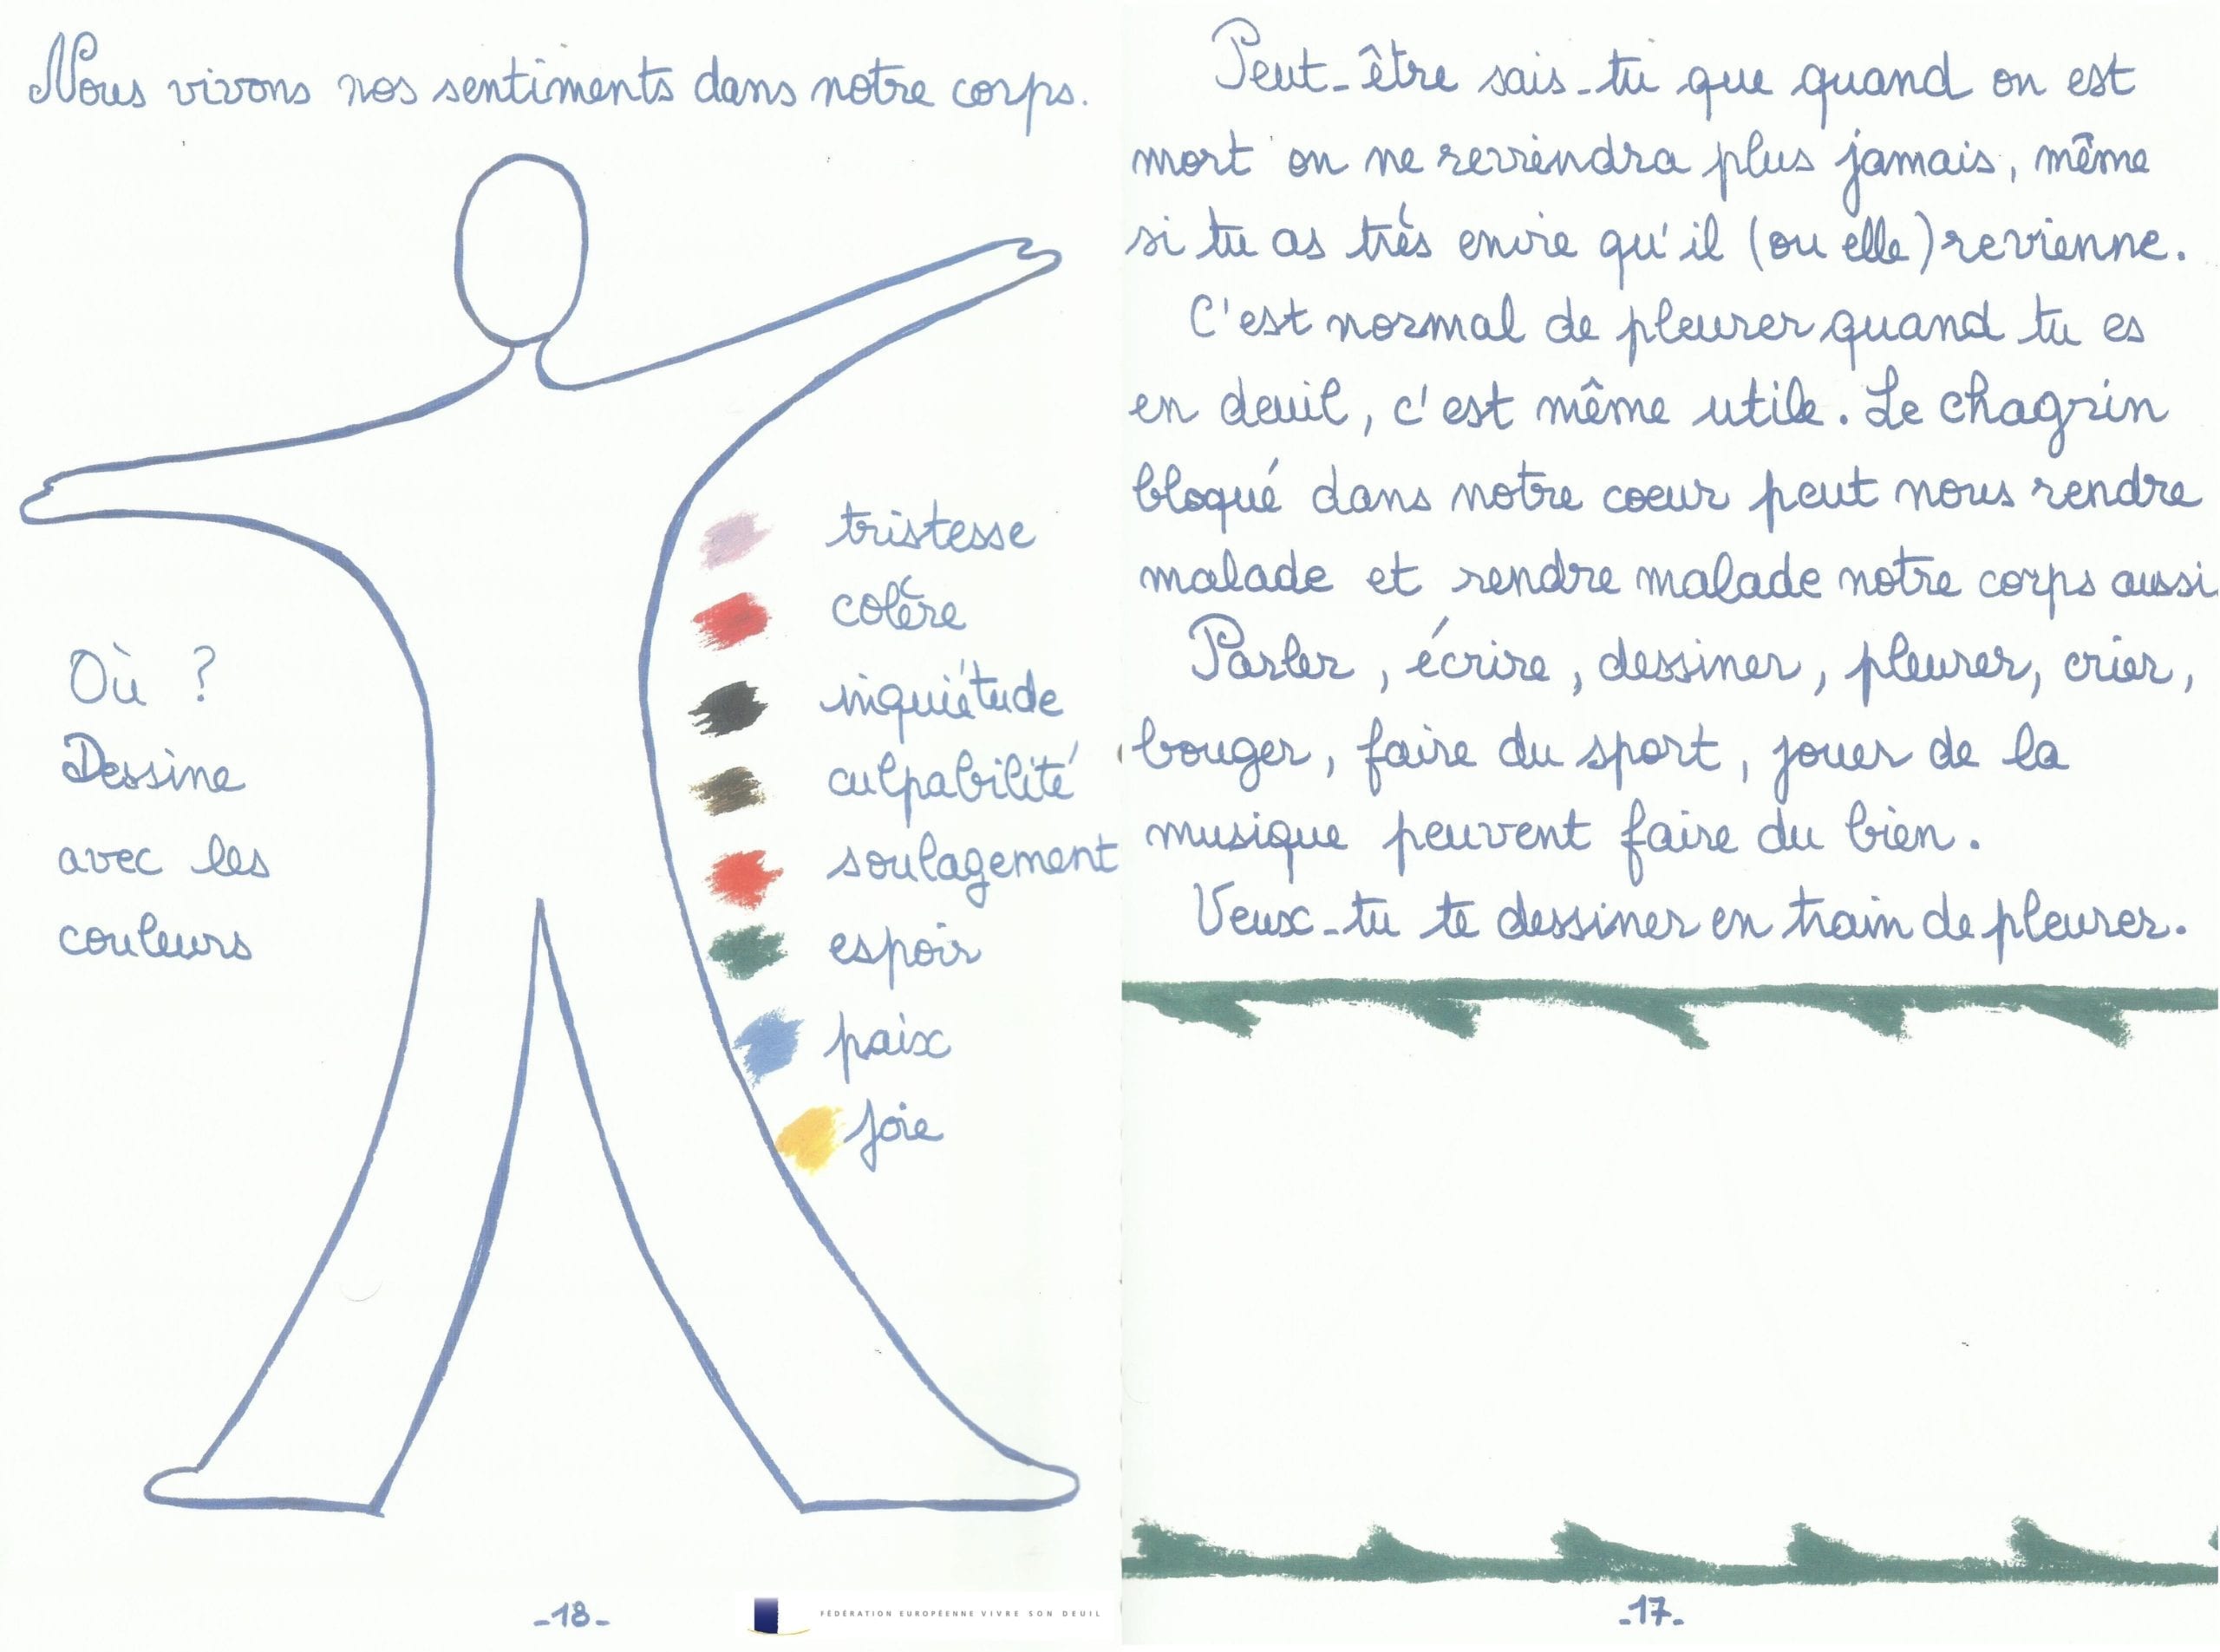 Nous vivons nos sentiments dans notre corps.
tristesse
colère
inquiétude
culpabilité
soulagement
espoir
paix
joie
Où ?
Dessine
avec les
couleurs
-18-
FÉDÉRATION EUROPÉENNE VIVRE SON DEUIL
Peut-être sais-tu que quand on est
mort on ne reviendra plus jamais, même
si tu as très envie qu'il (ou elle) revienne.
C'est normal de pleurer quand tu es
en deuil, c'est même utile. Le chagrin
bloqué dans notre coeur peut nous rendre
malade et rendre malade notre corps aussi.
Parler, écrire, dessiner, pleurer, crier,
bouger, faire du sport, jouer de la
musique peuvent faire du bien.
Veux-tu te dessiner en train de pleurer.
-17-